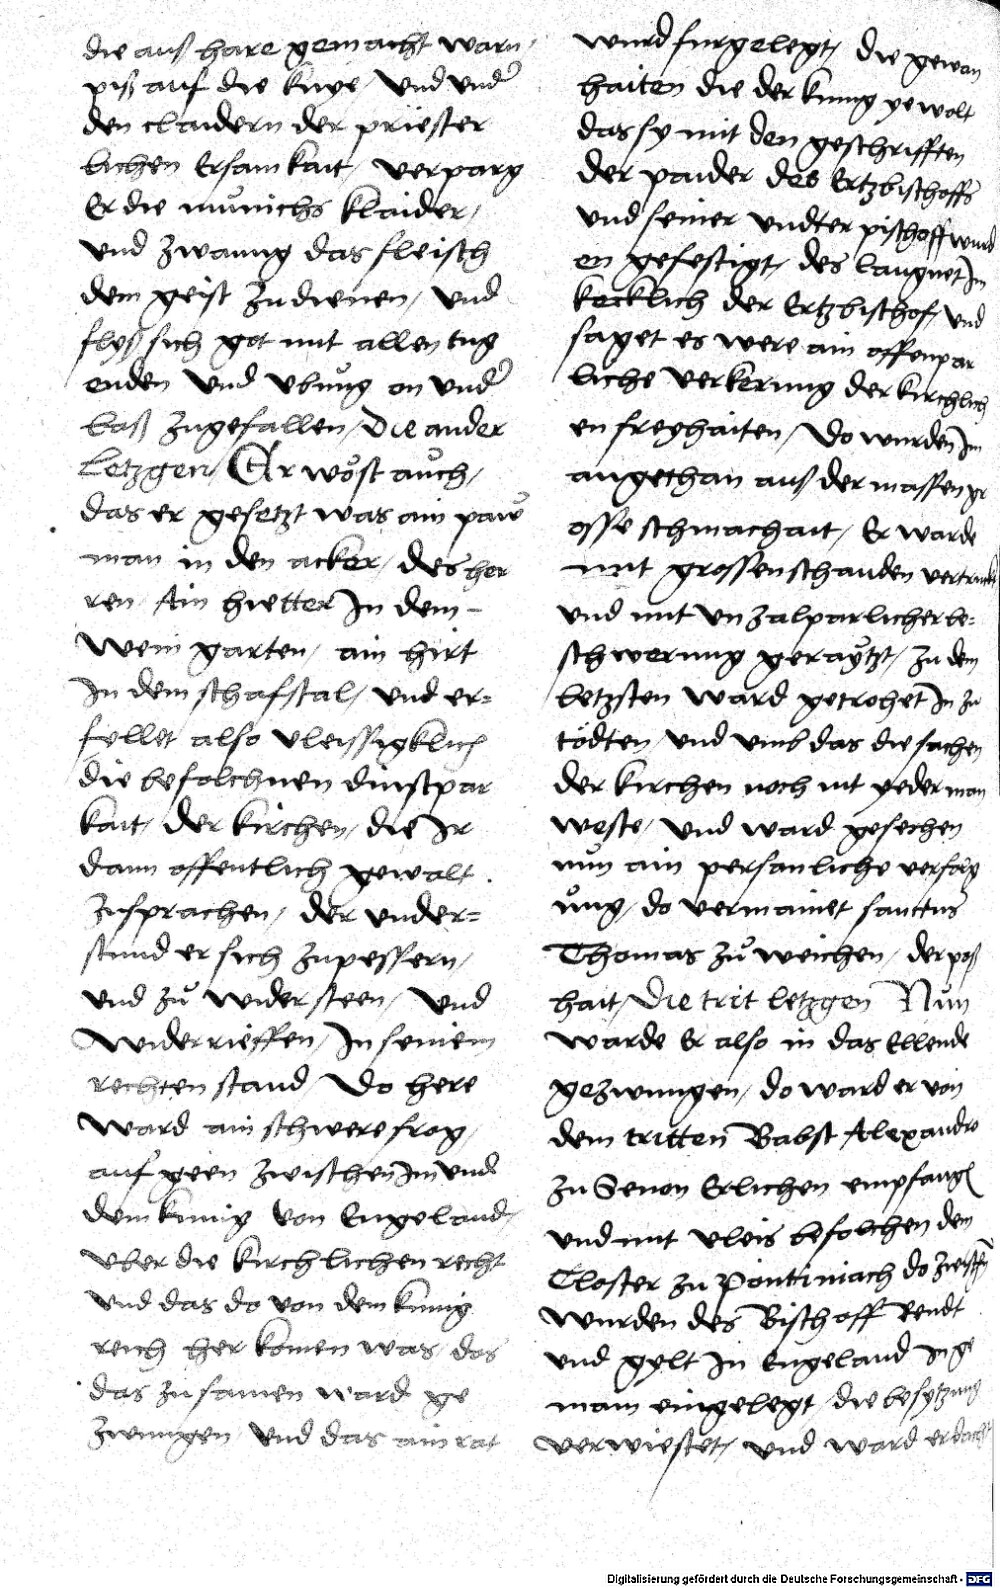 die auß hare gemacht warn
piß auf die knye / und und᷑
den claidern der priester
lichen Ersamkait / verparg
Er die mu̇nichs klaider /
und zwanng das fleisch
dem geist zu dienen / und
flyß sich got mit allen tug
enden und ubu̇ng on und᷑
laß zugefallen / Die ander
letzgen / Er wo̊st au̇ch /
das er gesetzt was ain paw
man in den acker / des her
ren / Ain huetter In dem -
wein garten / ain hirt
In dem schafstal / und er=
fellet also vleissigklich
die befolchnen dinstpar
kait / der kirchen / die Ir
dann offentlich gewalt .
zusprachen / der under=
stund er sich zupessern /
und zu̇ widersteen / und
widerrieffen / In seinem
rechten stand / Do here
ward ain schwere frag /
auf geen zwischen Im und
dem kunig von Engeland /
uber die kirchlichen recht
und das do von dem kunig
reich her komen was / das
das zusamen ward ge
zwungen / und das ain rat
wurd furgelegt / die gewon
haiten die der kunig ye wolt
das sy mit den geschrifften
der paider des Ertzbischoffs
und seiner undter pischoff wurd
en gefestigt / des laugnet Im
kecklich der Ertzbischof / und
saget es were ain offenpar
liche verkerung der kirchlich
en freyhaiten / Do wurden Im
angethan auß der massen gr
osse schmachait / Er warde
mit grossen schanden
und mit unzalparlicher be=
schwerung geraytzt / zu dem
letzsten ward getrohet In zu
tödten / und umb das die sachen
der kirchen noch nit yederman
weste / und ward gesechen
nu̇n ain personliche verfolg
u̇ng / do vermainet sanctus
Thomas zu̇ weichen / der poß
hait / Die trit letzgen Nu̇n
warde Er also in das Ellende
gezwungen / do ward er von
dem tritten Babst Alexandro
zu Senon Erlichen empfang
und mit vleis befolchen dem
Closter zu Pontiniach do
wurden des Bischoff Rendt
und gylt In Engeland In ge
main eingelegt / die besytzung
verwiestet / und ward erdacht
Digitalisierung gefördert durch die Deutsche Forschungsgemeinschaft - DFG